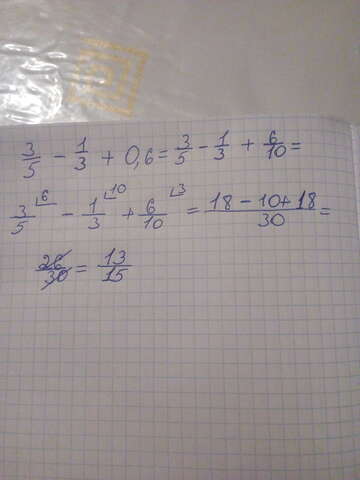 3/5 - 1/3 + 0,6 = 3/5 - 1/3 + 6/10 =
3/5 ⌞6 - 1/3 ⌞10 + 6/10 ⌞3 = (18 - 10 + 18)/30 =
26/30 = 13/15